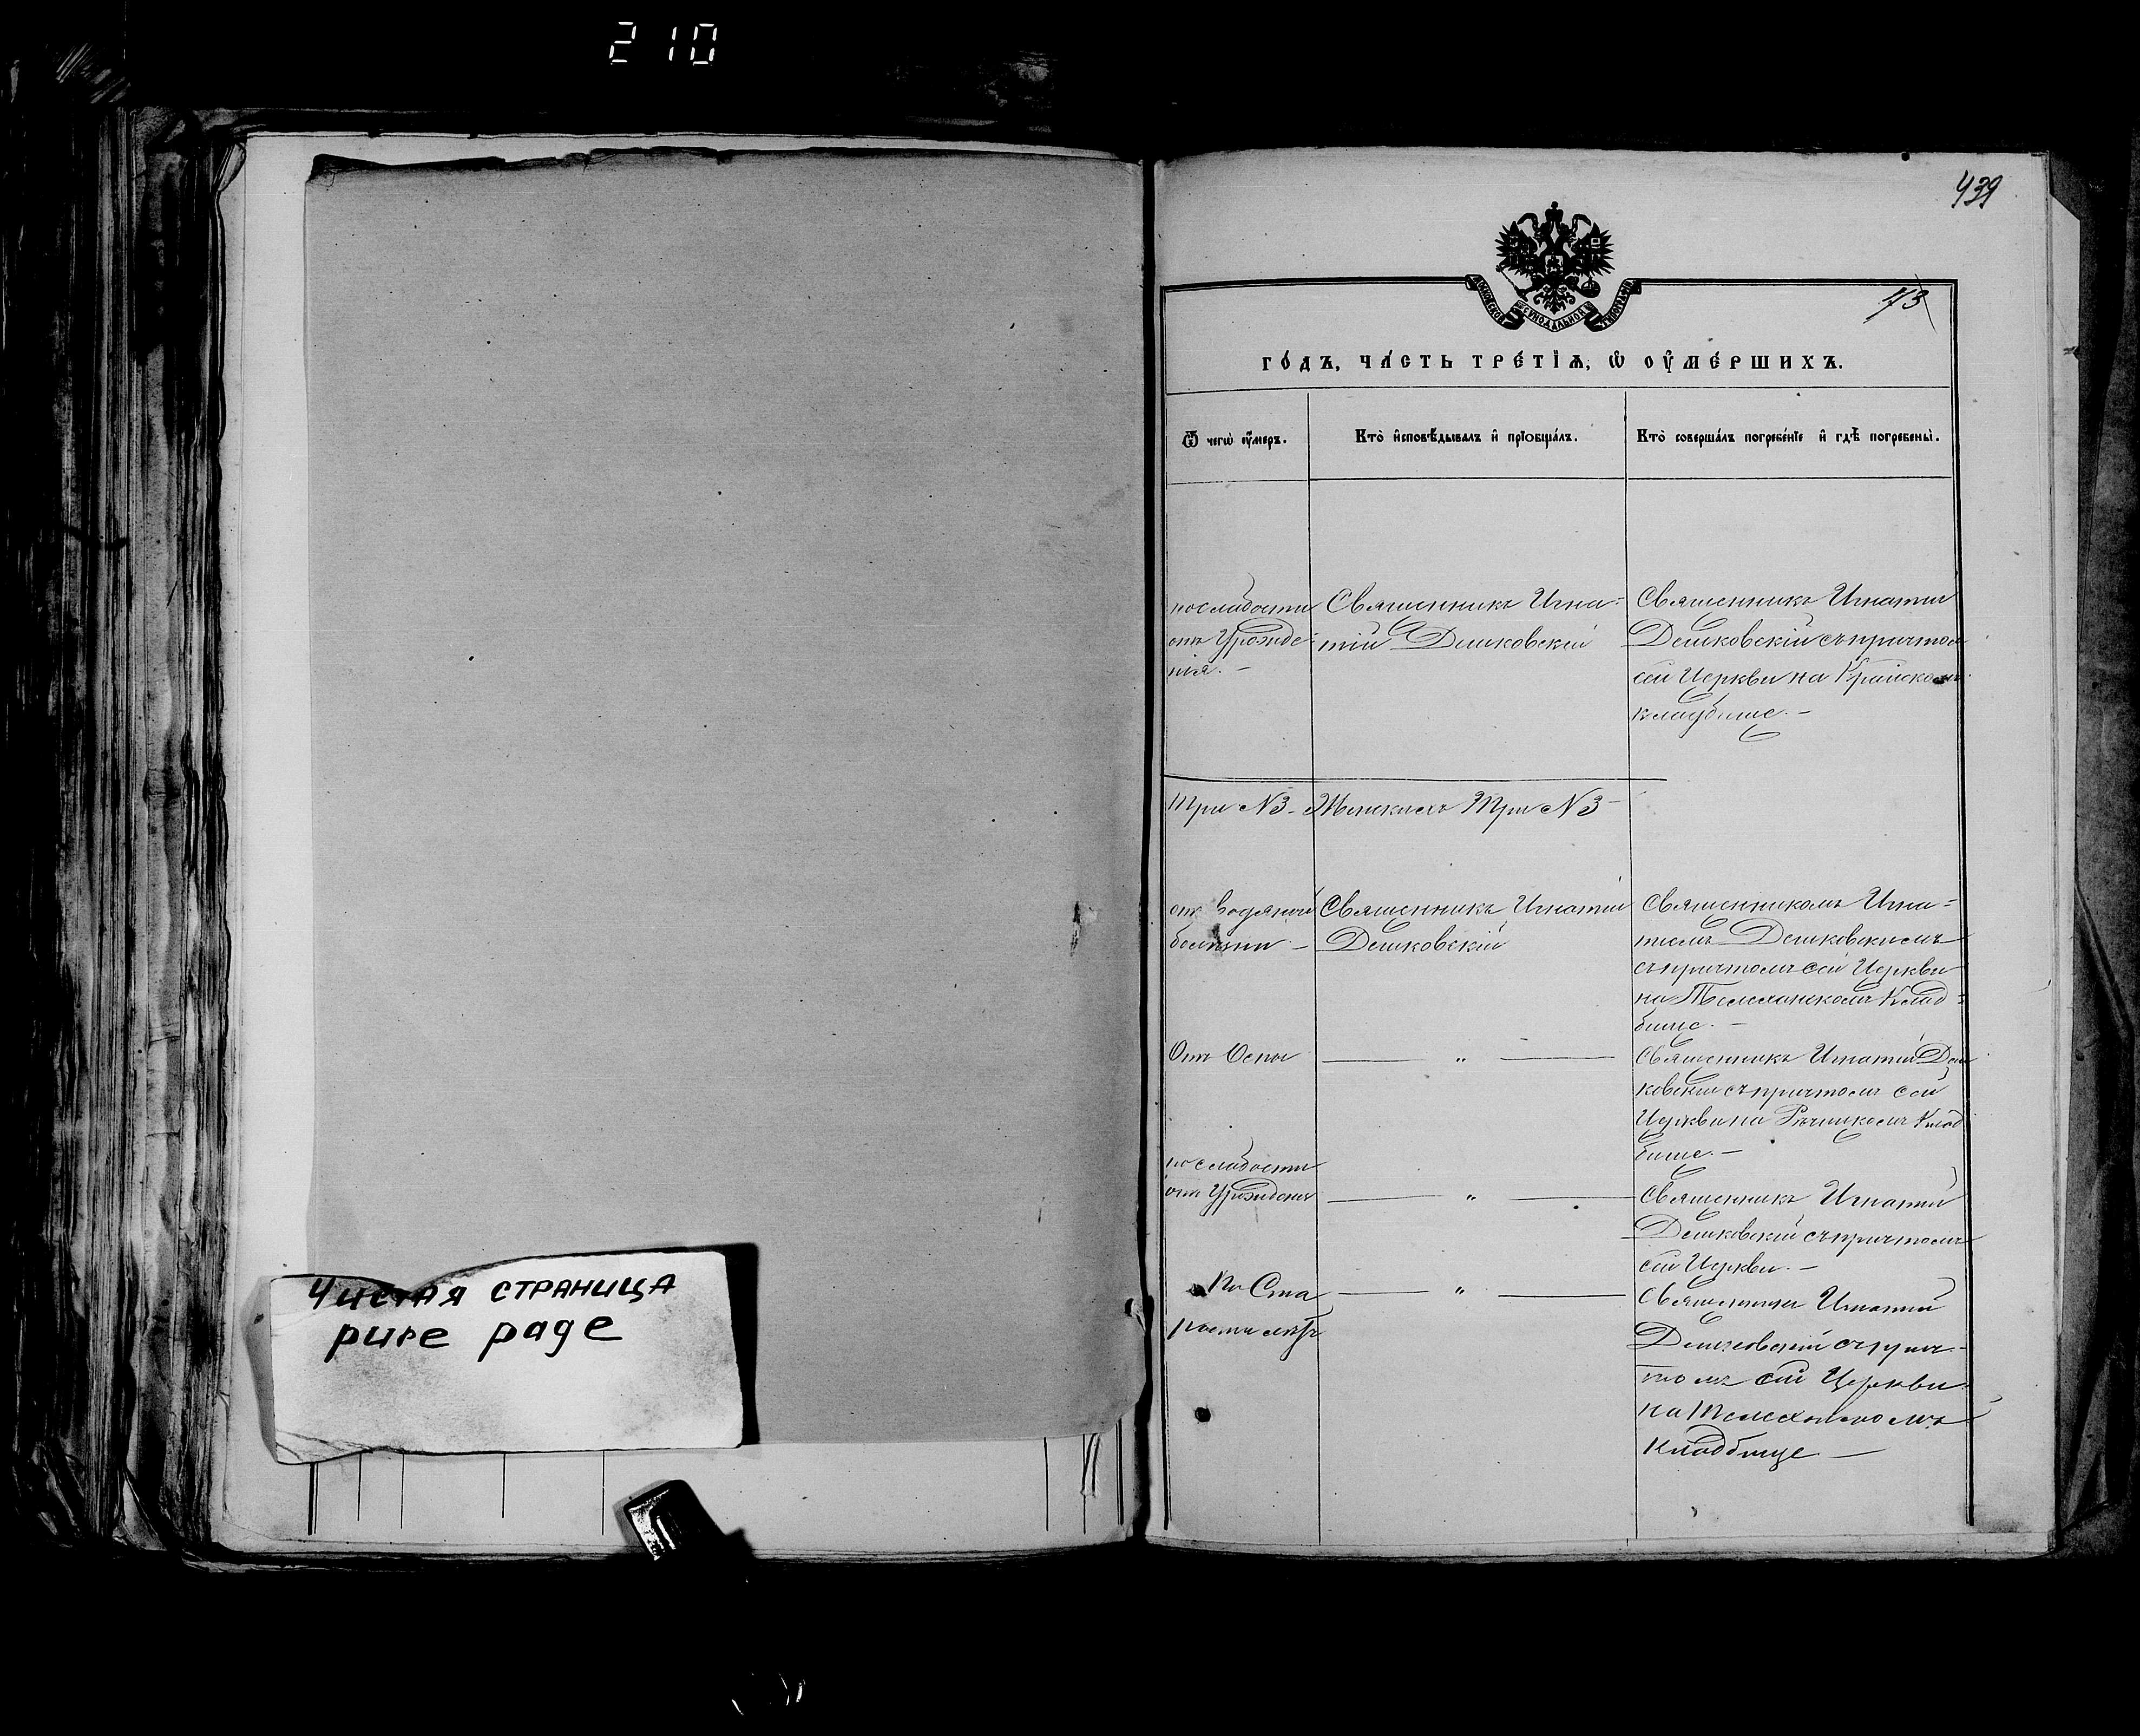 210
Чистая страница
pure page
439
43
МОСКОВСКОЙ СѴНОДАЛЬНОЙ ТИПОГРАФІИ
ГО́ДЪ, ЧА́СТЬ ТРЕ́ТІѦ, Ѡ҆ ОУ҆МЕ́РШИХЪ.
Ѿ чегѡ̀ оу҆́меръ.
Кто̀ и҆сповѣ́дывалъ и҆ прїобща́лъ.
Кто̀ соверша́лъ погребе́нїе и҆ гдѣ̀ погребены̀.
по слабости
отъ Урожде-
нія. -
Священникъ Игна-
тій Дешковскій
Священникъ Игнатій
Дешковскій съ причтом
сей Церкви на Крайском
кладбище. -
Три №3 - Женскихъ Три №3 -
отъ водяной
болезни -
Священникъ Игнатій
Дешковскій
Священникомъ Игна-
тіемъ Дешковскимъ
съ причтомъ сей Церкви
на Телеханскомъ Клад-
бище. -
Отъ Оспы
— " —
Священникъ Игнатій Деш
ковскій съ причтомъ сей
Церкви на Клад
бище. -
по слабости
отъ Урожденія
— " —
Священникъ Игнатій
Дешковскій съ причтомъ
сей Церкви. -
По Ста
рости летъ
— " —
Священникъ Игнатій
Дешковскій съ прич-
томъ сей Церкви
на Телеханскомъ
Кладбище —